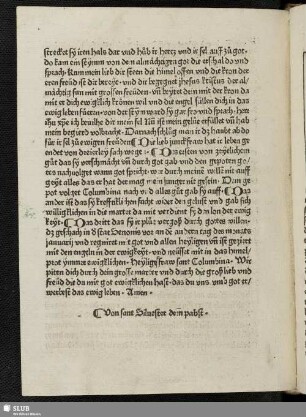 strecket sy iren hals dar vnd hůb ir hertz vnd ir sel auff zů got.
do kam ein stymm von dem almächtigen got die erschal do vnd
sprach. Kum mein lieb dir seen die himel offen vnd die kron der
eren freüd ist dir bereyt. vnd dir begegnet ihesus kristus der al-
mächtig sun mit grossen freüden. vn beütet dir mit der kron da
mit er dich ewigklich krönen wil vnd die engel süllen dich in das
ewig leben füeren. von der stymm ward sy gar fro vnd sprach. herr
ich beuilhe dir mein sel
mein begird volbracht. Darnach schlůg man ir das haubt ab do
fůr ir sel zů ewigen freüden. Die lieb junckfraw hat ir leben ge-
endet von dreierley sach wegen. Das erst von zergäncklichem
gůt das sy verschmächt vnd durch got gab vnd den gepoten go-
tes nachuolget wann got sprach wir meiner wille nit auff
geyt alles das er hat der mag mein junger nit gesein. Dem ge-
pot volget Columbina nach vnd alles gůt gab sy auff. Das
ander ist das sy
willigklichen in die marter da mit verdient sy den lon der ewi-
Das dritt das sy ir plůt vergoß durch gottes willen.
dz geschach in der stat Senonis vor an de andern tag des monats
januarij vnd regniret mit got vnd allen heyligen vn ist gezieret
mit den engeln in der ewigkeyt. vnd neüsset mit in das himel-
prot ymmer ewigklichen. Heylige fraw sant Columbina. Wir
piten dich durch dein grosse marter vnd durch die groß lieb vnd
freüd die du mit got ewigklichen hast. das du vns vmb got er-
werbest das ewig leben. Amen.
Von sant Siluester dem pabst.
SLUB